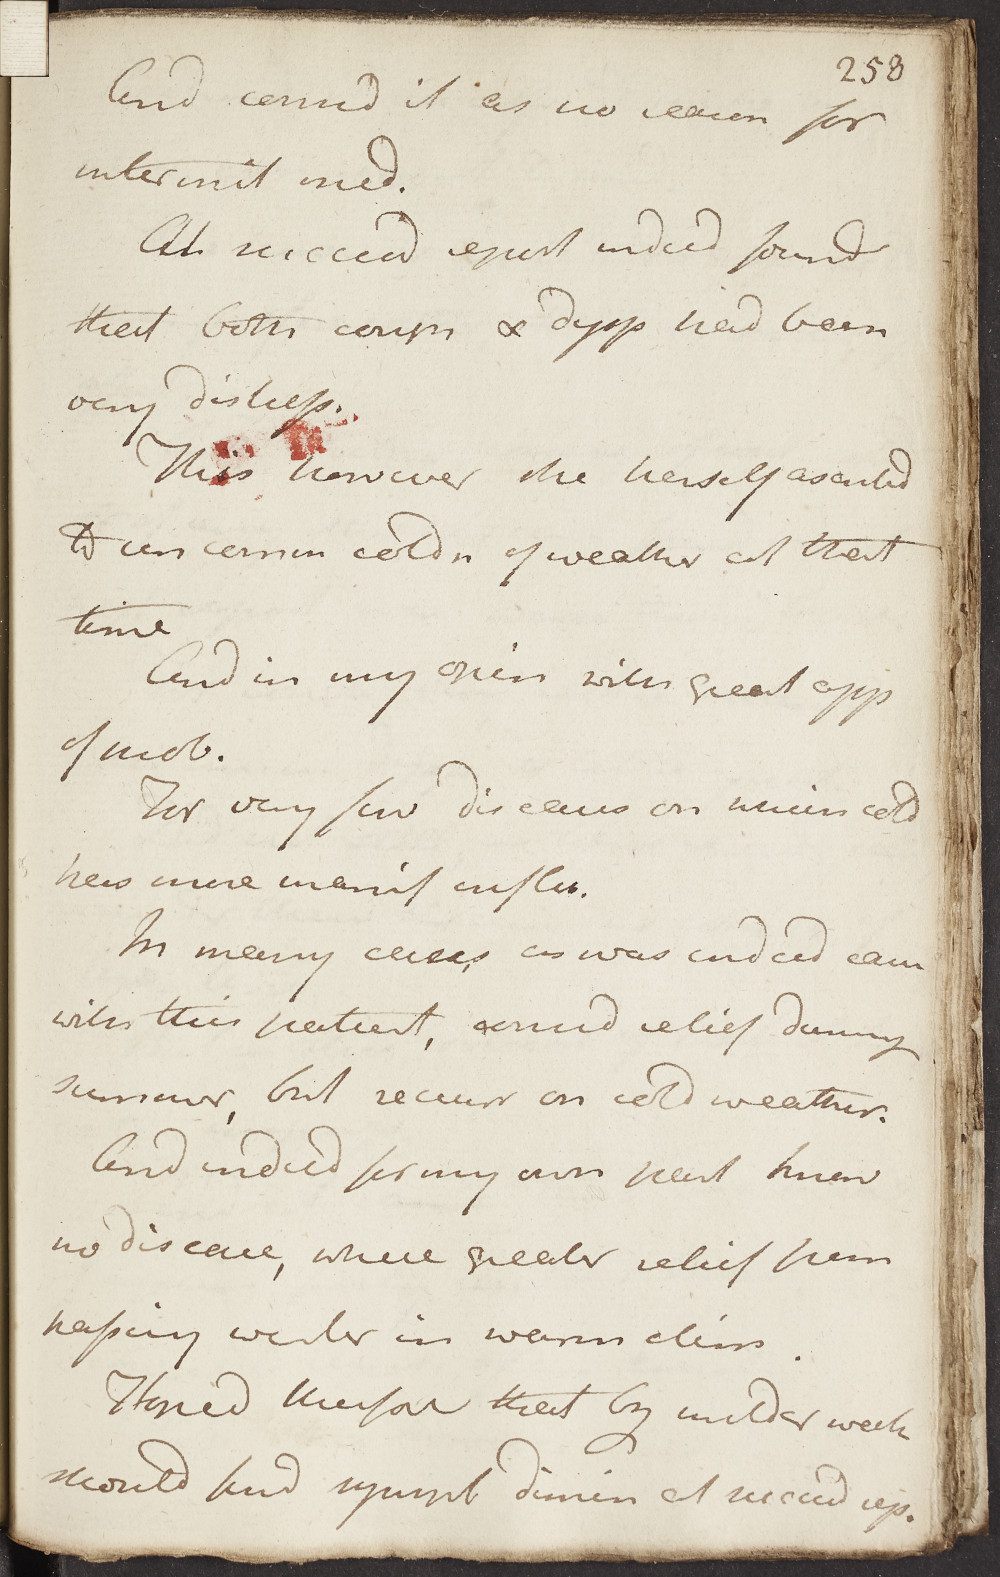 258
And consid it as no reason for
intermit med.
At succeed report indeed found
that both cough & dysp had been
very distress.
This however she herself ascribd
to uncommon coldn of weather at that
time
And in my opin with great app
of prob.
For very few diseases on which cold
has more manif influ.
In many cases, as was indeed case
with this patient, consid relief during
summer, but recurr on cold weather.
And indeed for my own part know
no disease, where greater relief from
passing winter in warm clim.
Hoped therefore that by milder weath
should find sympt dimin at succeed rep.